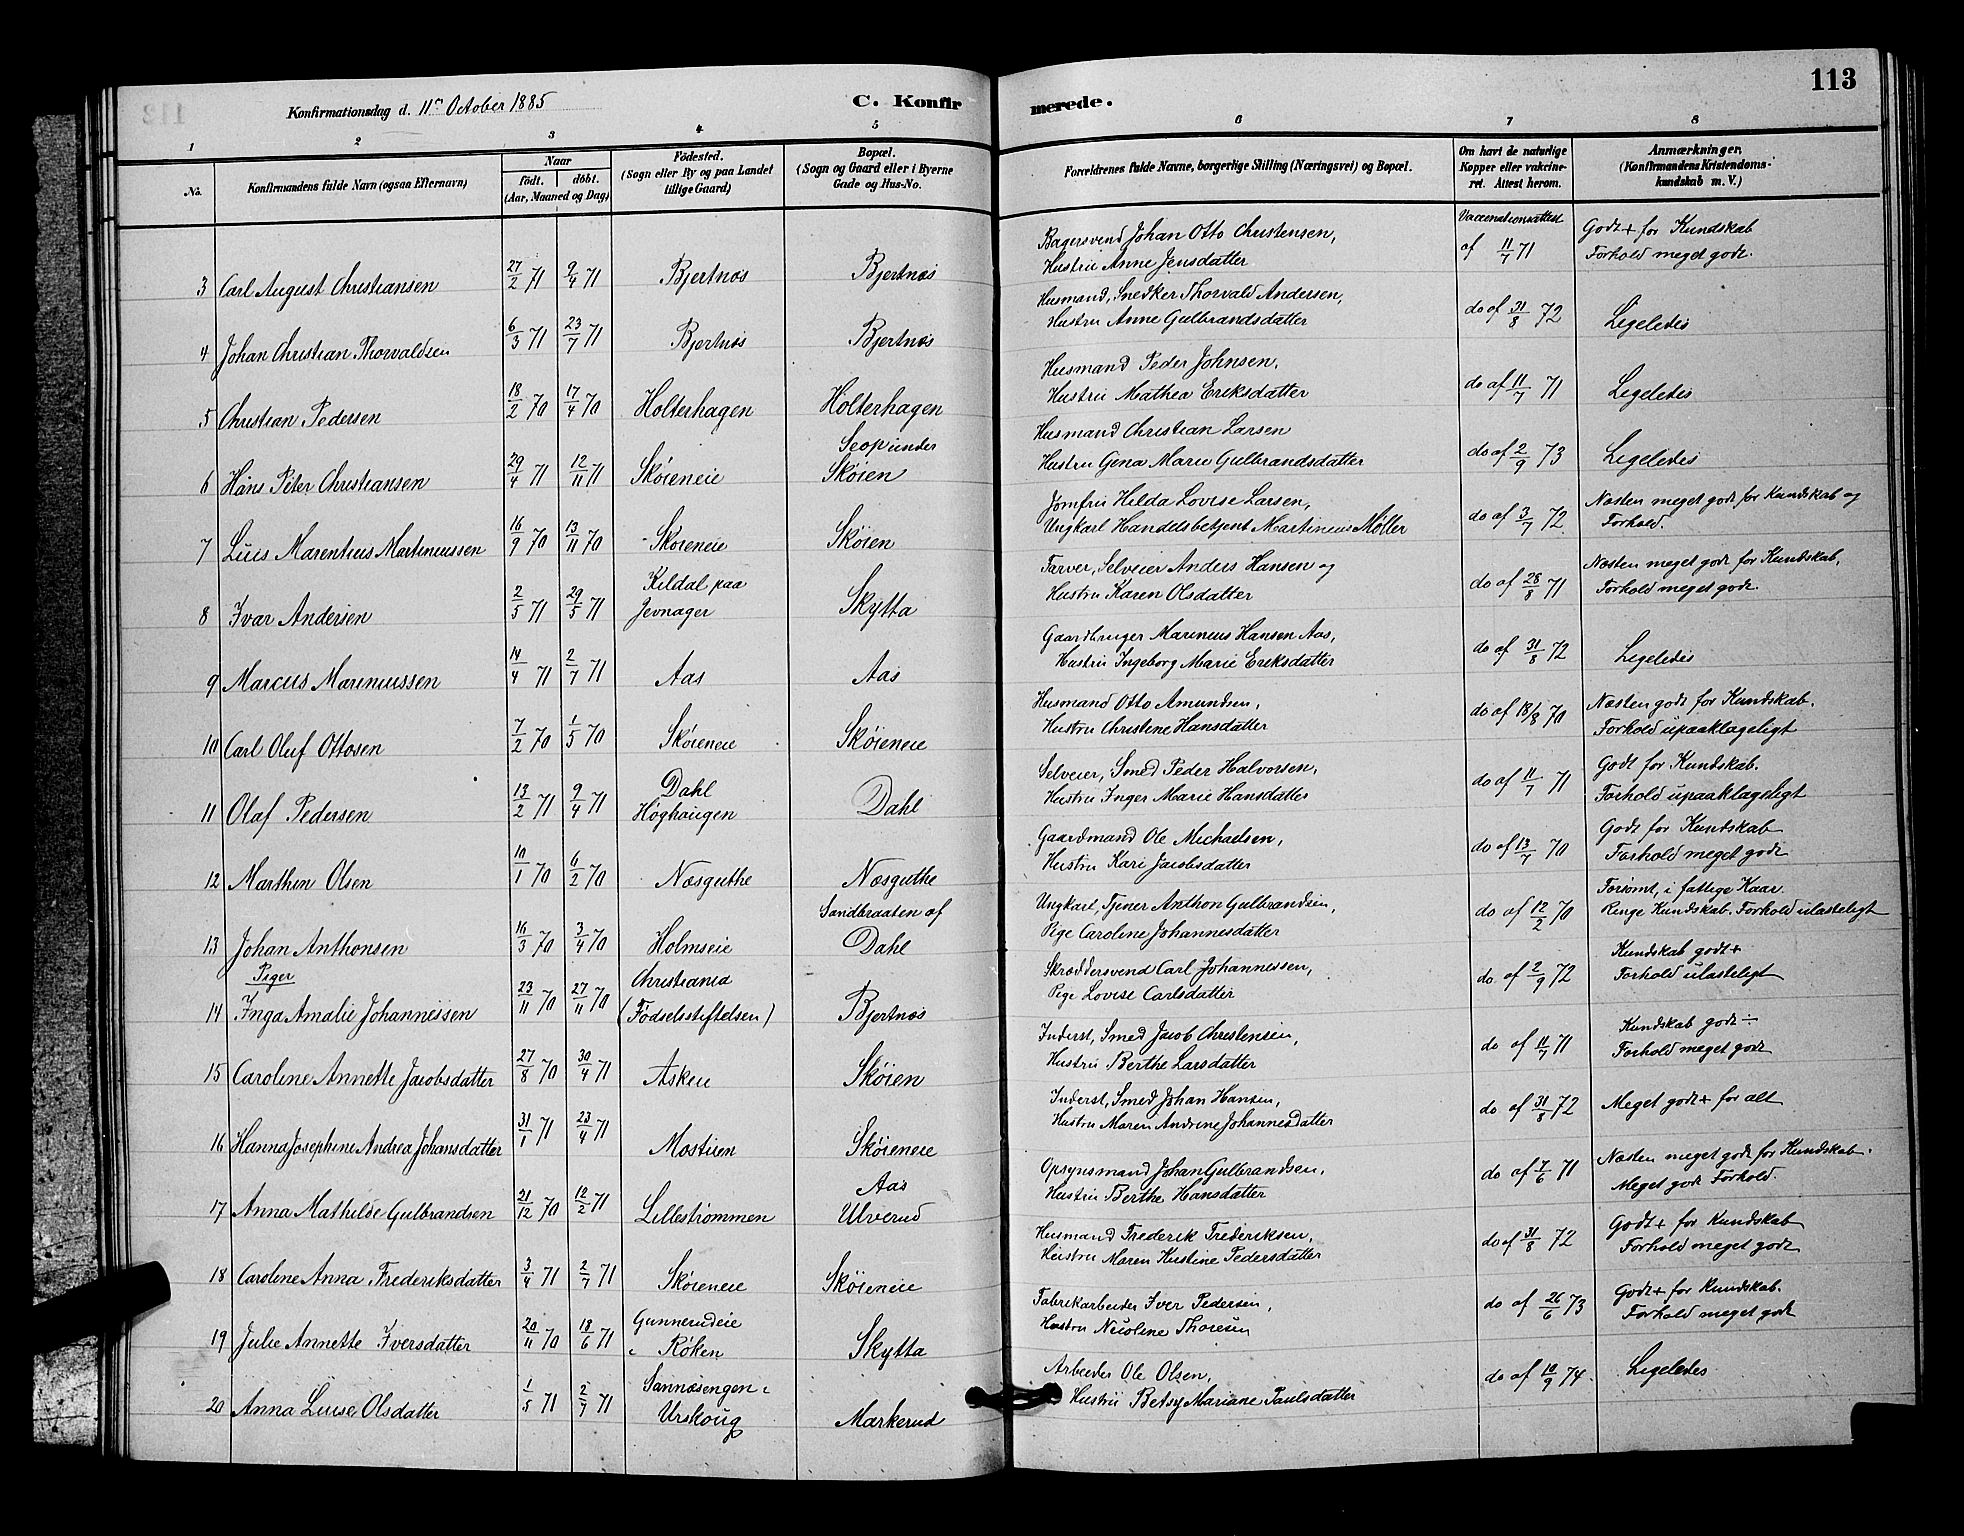 113
Konfirmationsdag d. 11te October 1885 C. Konfirmerede.
1 2 3 4 5 6 7 8
No. Konfirmandens fulde Navn (ogsaa Efternavn) Naar født. døbt. (Aar, Maaned og Dag) Fødested. (Sogn eller By og paa Landet tillige Gaard) Bopæl. (Sogn og Gaard eller i Byerne Gade og Hus-No. Forældrenes fulde Navne, borgerlige Stilling (Næringsvei) og Bopæl. Om havt de naturlige Kopper eller vakcineret. Attest herom. Anmærkninger, (Konfirmandens Kristendomskundskab m. V.)
3 Carl August Christiansen 27/2 71 9/4 71 Bjertnæs Bjertnæs Bagersvend Johan Otto Christensen, Hustru Anne Jensdatter Vaccinationsattest af 11/7 71 Godt + for Kundskab Forhold meget godt.
4 Johan Christian Thorvaldsen 6/3 71 23/7 71 Bjertnæs Bjertnæs Husmand, Snedker Thorvald Andersen, Hustru Anne Gulbrandsdatter do af 31/8 72 Ligeledes
5 Christian Pedersen 18/2 70 17/4 70 Holterhagen Holterhagen Husmand Peder Johnsen, Hustru Mathea Eriksdatter do af 11/7 71 Ligeledes
6 Hans Peter Christiansen 29/4 71 12/11 71 Skøieneie Scop under Skøien Husmand Christian Larsen Hustru Gena Marie Gulbrandsdatter do af 2/9 73 Ligeledes
7 Luis Marentius Martinussen 16/9 70 13/11 70 Skøieneie Skøien Jomfru Hilda Lovise Larsen, Ungkarl Handelsbetjent Martinius Møller do af 3/7 72 Næsten meget godt for Kundskab og Forhold.
8 Ivar Andersen 2/5 71 29/5 71 Kildal paa Jevnager Skytta Farver, Selveier Anders Hansen og Hustru Karen Olsdatter do af 28/8 71 Næsten meget godt for Kundskab, Forhold meget godt.
9 Marcus Marinussen 14/4 71 2/7 71 Aas Aas Gaardbruger Marinius Hansen Aas, Hustru Ingeborg Marie Eriksdatter do af 31/8 72 Ligeledes
10 Carl Oluf Ottosen 7/2 70 1/5 70 Skøieneie Skøieneie Husmand Otto Amundsen, Hustru Christine Hansdatter do af 18/8 70 Næsten godt for Kundskab. Forhold upaaklageligt
11 Olaf Pedersen 13/2 71 9/4 71 Dahl Høghaugen Dahl Selveier, Smed Peder Halvorsen, Hustru Inger Marie Hansdatter do af 11/7 71 Godt for Kundskab. Forhold upaaklageligt
12 Marthin Olsen 10/1 70 6/2 70 Næsguthe Næsguthe Gaardmand Ole Michaelsen, Hustru Kari Jacobsdatter do af 13/7 70 Godt for Kundskab Forhold meget godt
13 Johan Anthonsen 16/3 70 3/4 70 Holmseie Sandbraaten af Dahl Ungkarl, Tjener Anthon Gulbrandsen, Pige Caroline Johannesdatter do af 12/2 70 Forsømt, i fattige Kaar. Ringe Kundskab. Forhold ulasteligt
Piger
14 Inga Amalie Johannessen 23/11 70 27/11 70 Christiania (Fødselsstiftelsen) Bjertnæs Skræddersvend Carl Johannessen, Pige Lovise Carlsdatter do af 2/9 72 Kundskab godt + Forhold ulasteligt
15 Caroline Annette Jacobsdatter 27/8 70 30/4 71 Askeie Skøien Inderst, Smed Jacob Christensen, Hustru Berthe Larsdatter do af 11/7 71 Kundskab godt ÷ Forhold meget godt
16 Hanna Josephine Andrea Johansdatter 31/1 71 23/4 71 Mostuen Skøieneie Inderst, Smed Johan Hansen, Hustru Maren Andrine Johannesdatter do af 31/8 72 Meget godt + for alt
17 Anna Mathilde Gulbrandsen 21/12 70 12/2 71 Lillestrømmen Aas Ulverud Opsynsmand Johan Gulbrandsen, Hustru Berthe Hansdatter do af 7/6 71 Næsten meget godt for Kundskab. Meget godt Forhold.
18 Caroline Anna Frederiksdatter 3/4 71 2/7 71 Skøieneie Skøieneie Husmand Frederik Frederiksen, Hustru Maren Kristine Pedersdatter do af 31/8 72 Godt + for Kundskab Forhold meget godt
19 Julie Annette Iversdatter 20/11 70 18/6 71 Gunnerudeie i Røken Skytta Fabrikarbeider Iver Pedersen, Hustru Nicoline Thoresen do af 26/6 73 Godt + for Kundskab. Forhold meget godt
20 Anna Luise Olsdatter 1/5 71 2/7 71 Sannæsengen i Urskoug Markerud Arbeider Ole Olsen, Hustru Betsy Mariane Paulsdatter do af 10/9 74. Ligeledes